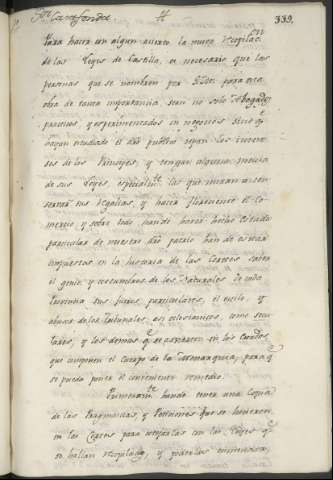 339.
Para hacer con algun acierto la nueva Recopilac.on
de las Leyes de Castilla, es necesario que las
personas que se nombren por S.M. para esta
obra de tanta importancia sean no solo Abogados
practicos, y experimentados en negocios sino q.e
hayan estudiado el dro publico sepan los intere-
ses de los Principes, y tengan alguna noticia
de sus Leyes, especialm.te las que miran a con-
servar sus Regalias, y hacer floreciente el Co-
mercio y sobre todo han de haver hecho estudio
particular de nuestro dro patrio han de estar
impuestos en la historia de las Cortes, saber
el genio y costumbres de los Naturales de cada
Provincia sus fueros particulares, el estilo, y
abusos de los Tribunales asi eclesiasticos, como secu-
lares, y los demas q.e se en los
que componen el cuerpo de la Monarquia, para q.e
se pueda poner el conveniente remedio.
Primeram.te han de tener una Copia
de las Pragmaticas, y Peticiones que se hicieron
en las Cortes para cotejarlas con las Leyes q.e
se hallan Recopiladas, y poderlas